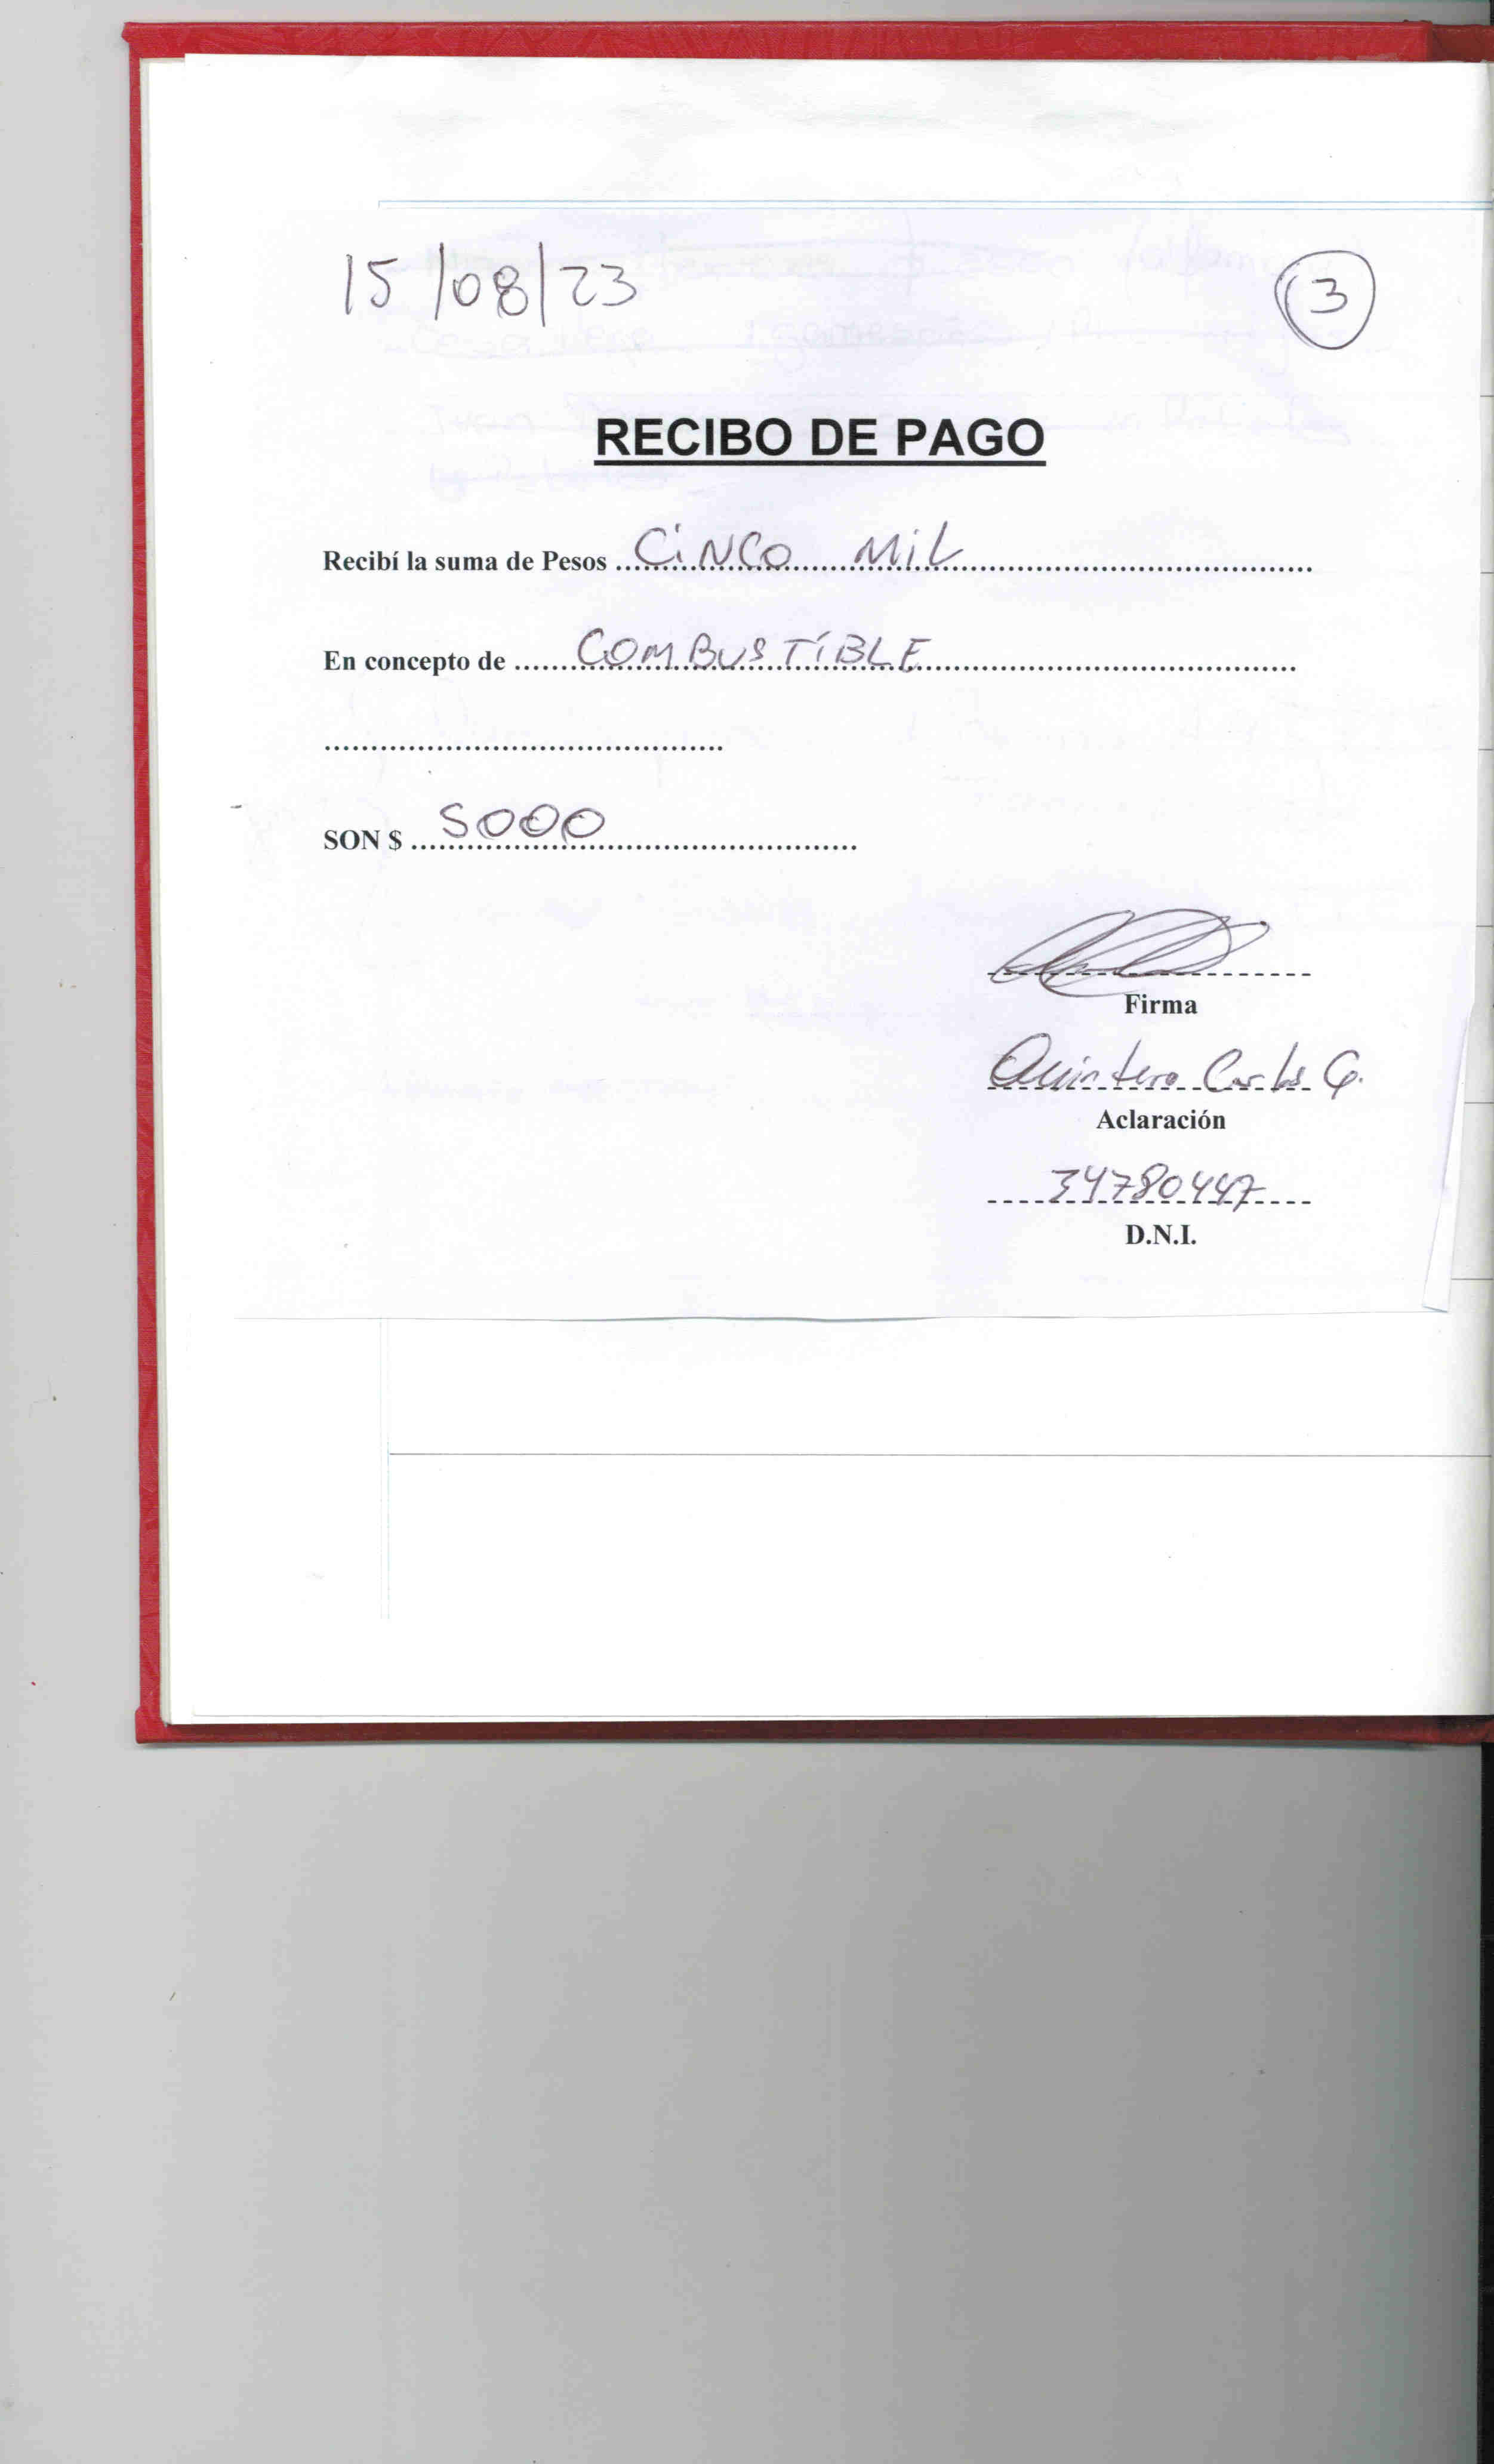 15/08/23
3
RECIBO DE PAGO
Recibí la suma de Pesos CiNCO MiL
En concepto de COMBUSTíBLE
SON $ 5000
Firma
Quintero Carlos G.
Aclaración
34780447
D.N.I.